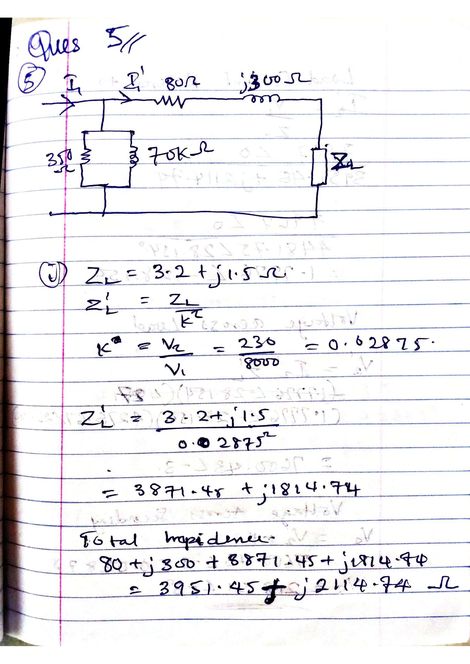 Ques 5//
5
I₁ I₁' 80Ω j300Ω
350 Ω 70KΩ Z_L
i) Z_L = 3.2 + j1.5 Ω
Z_L' = Z_L / K²
K = V₂ / V₁ = 230 / 8000 = 0.02875.
Z_L' = 3.2 + j1.5 / 0.02875²
= 3871.45 + j1814.74
Total Impidence.
80 + j300 + 3871.45 + j1814.74
= 3951.45 + j2114.74 Ω